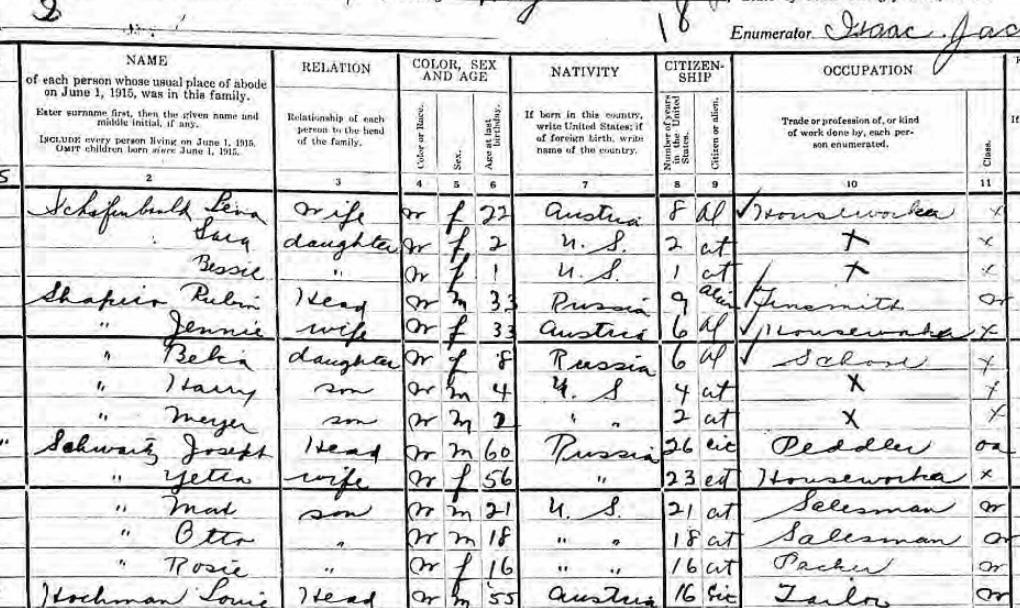 2 18 Enumerator Isaac Jac
NAME RELATION COLOR, SEX AND AGE NATIVITY CITIZEN-SHIP OCCUPATION
of each person whose usual place of abode on June 1, 1915, was in this family.
Enter surname first, then the given name and middle initial, if any.
INCLUDE every person living on June 1, 1915. OMIT children born since June 1, 1915.
Relationship of each person to the head of the family.
Color or Race. Sex. Age at last birthday.
If born in this country, write United States; if of foreign birth, write name of the country.
Number of years in the United States. Citizen or alien.
Trade or profession of, or kind of work done by, each person enumerated.
Class.
2 3 4 5 6 7 8 9 10 11
Lena wife W f 22 Austria 8 Al Houseworker x
Sara daughter W f 2 U. S. 2 cit x x
Bessie " W f 1 U. S. 1 cit x x
Shapiro Rubin Head W m 33 Russia 9 Alien Tinsmith W
" Jennie wife W f 33 Austria 6 Al Houseworker x
" daughter W f 8 Russia 6 Al School x
" Harry son W m 4 U. S 4 cit x x
" Meyer son W m 2 " " 2 cit x x
Schwartz Joseph Head W m 60 Russia 26 cit Peddler oa
" Yetta wife W f 56 " 23 cit Houseworker x
" son W m 21 U. S. 21 cit Salesman W
" Otto " W m 18 " " 18 cit Salesman W
" Rosie " W f 16 " " 16 cit Packer W
Hochman Louis Head W m 55 Austria 16 cit Tailor W